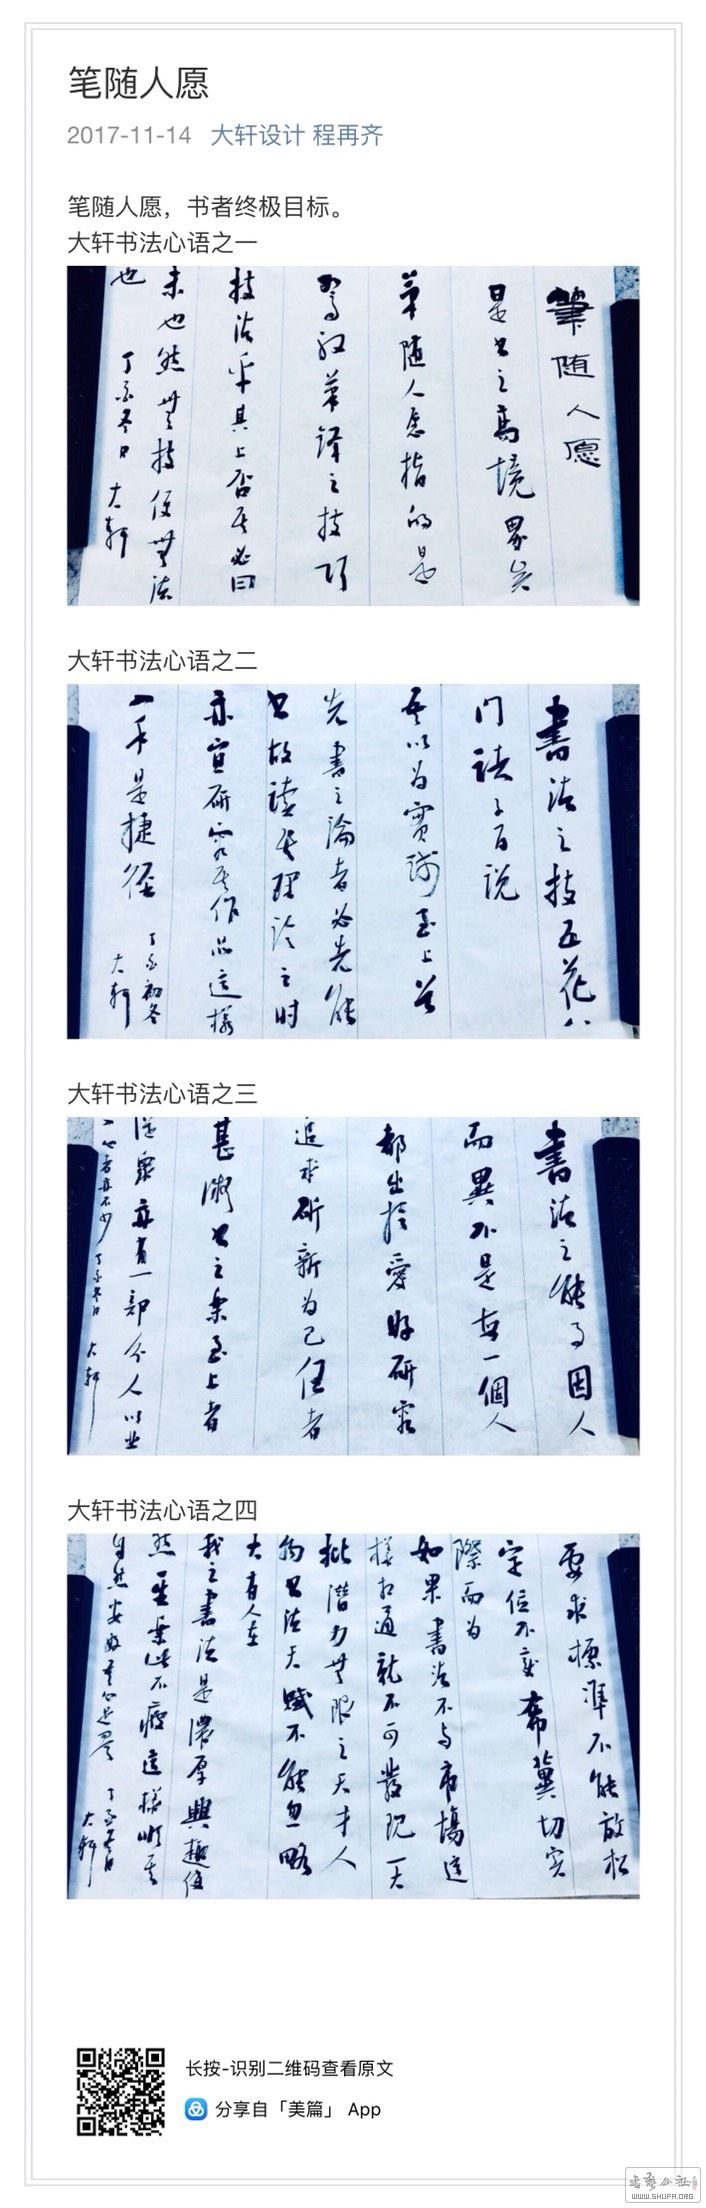 笔随人愿
2017-11-14 大轩设计 程再齐
笔随人愿，书者终极目标。
大轩书法心语之一
筆随人愿
是书之高境界矣
筆随人愿指的是
驾驭筆锋之技巧
技法乎其上否吾必曰
未也然無技便無法
也
丁酉冬日
大軒
大轩书法心语之二
書法之技五花八
门諸子百说
吾以为實踐至上善
先書之論者必先能
书故读其理论之时
亦宜研究其作品這樣
一来是捷徑
丁酉初冬
大軒
大轩书法心语之三
書法之能了因人
而異不是每一個人
都出於愛好研究
追求斫新为己任者
甚微书之業至上者
從眾亦有一部分人以业
丁酉冬日
大軒
大轩书法心语之四
要求標準不能放松
定位不변希冀切实
際而为
如果書法不与市場這
樣相通就不可發现一大
批潜力無限之天才人
物书法天賦不能忽略
大有人在
我之書法是濃厚興趣使
然至業此不疲這樣順其
自然安好
丁酉冬日
大軒
长按-识别二维码查看原文
分享自「美篇」 App
书艺公社
WWW.SHUFA.ORG